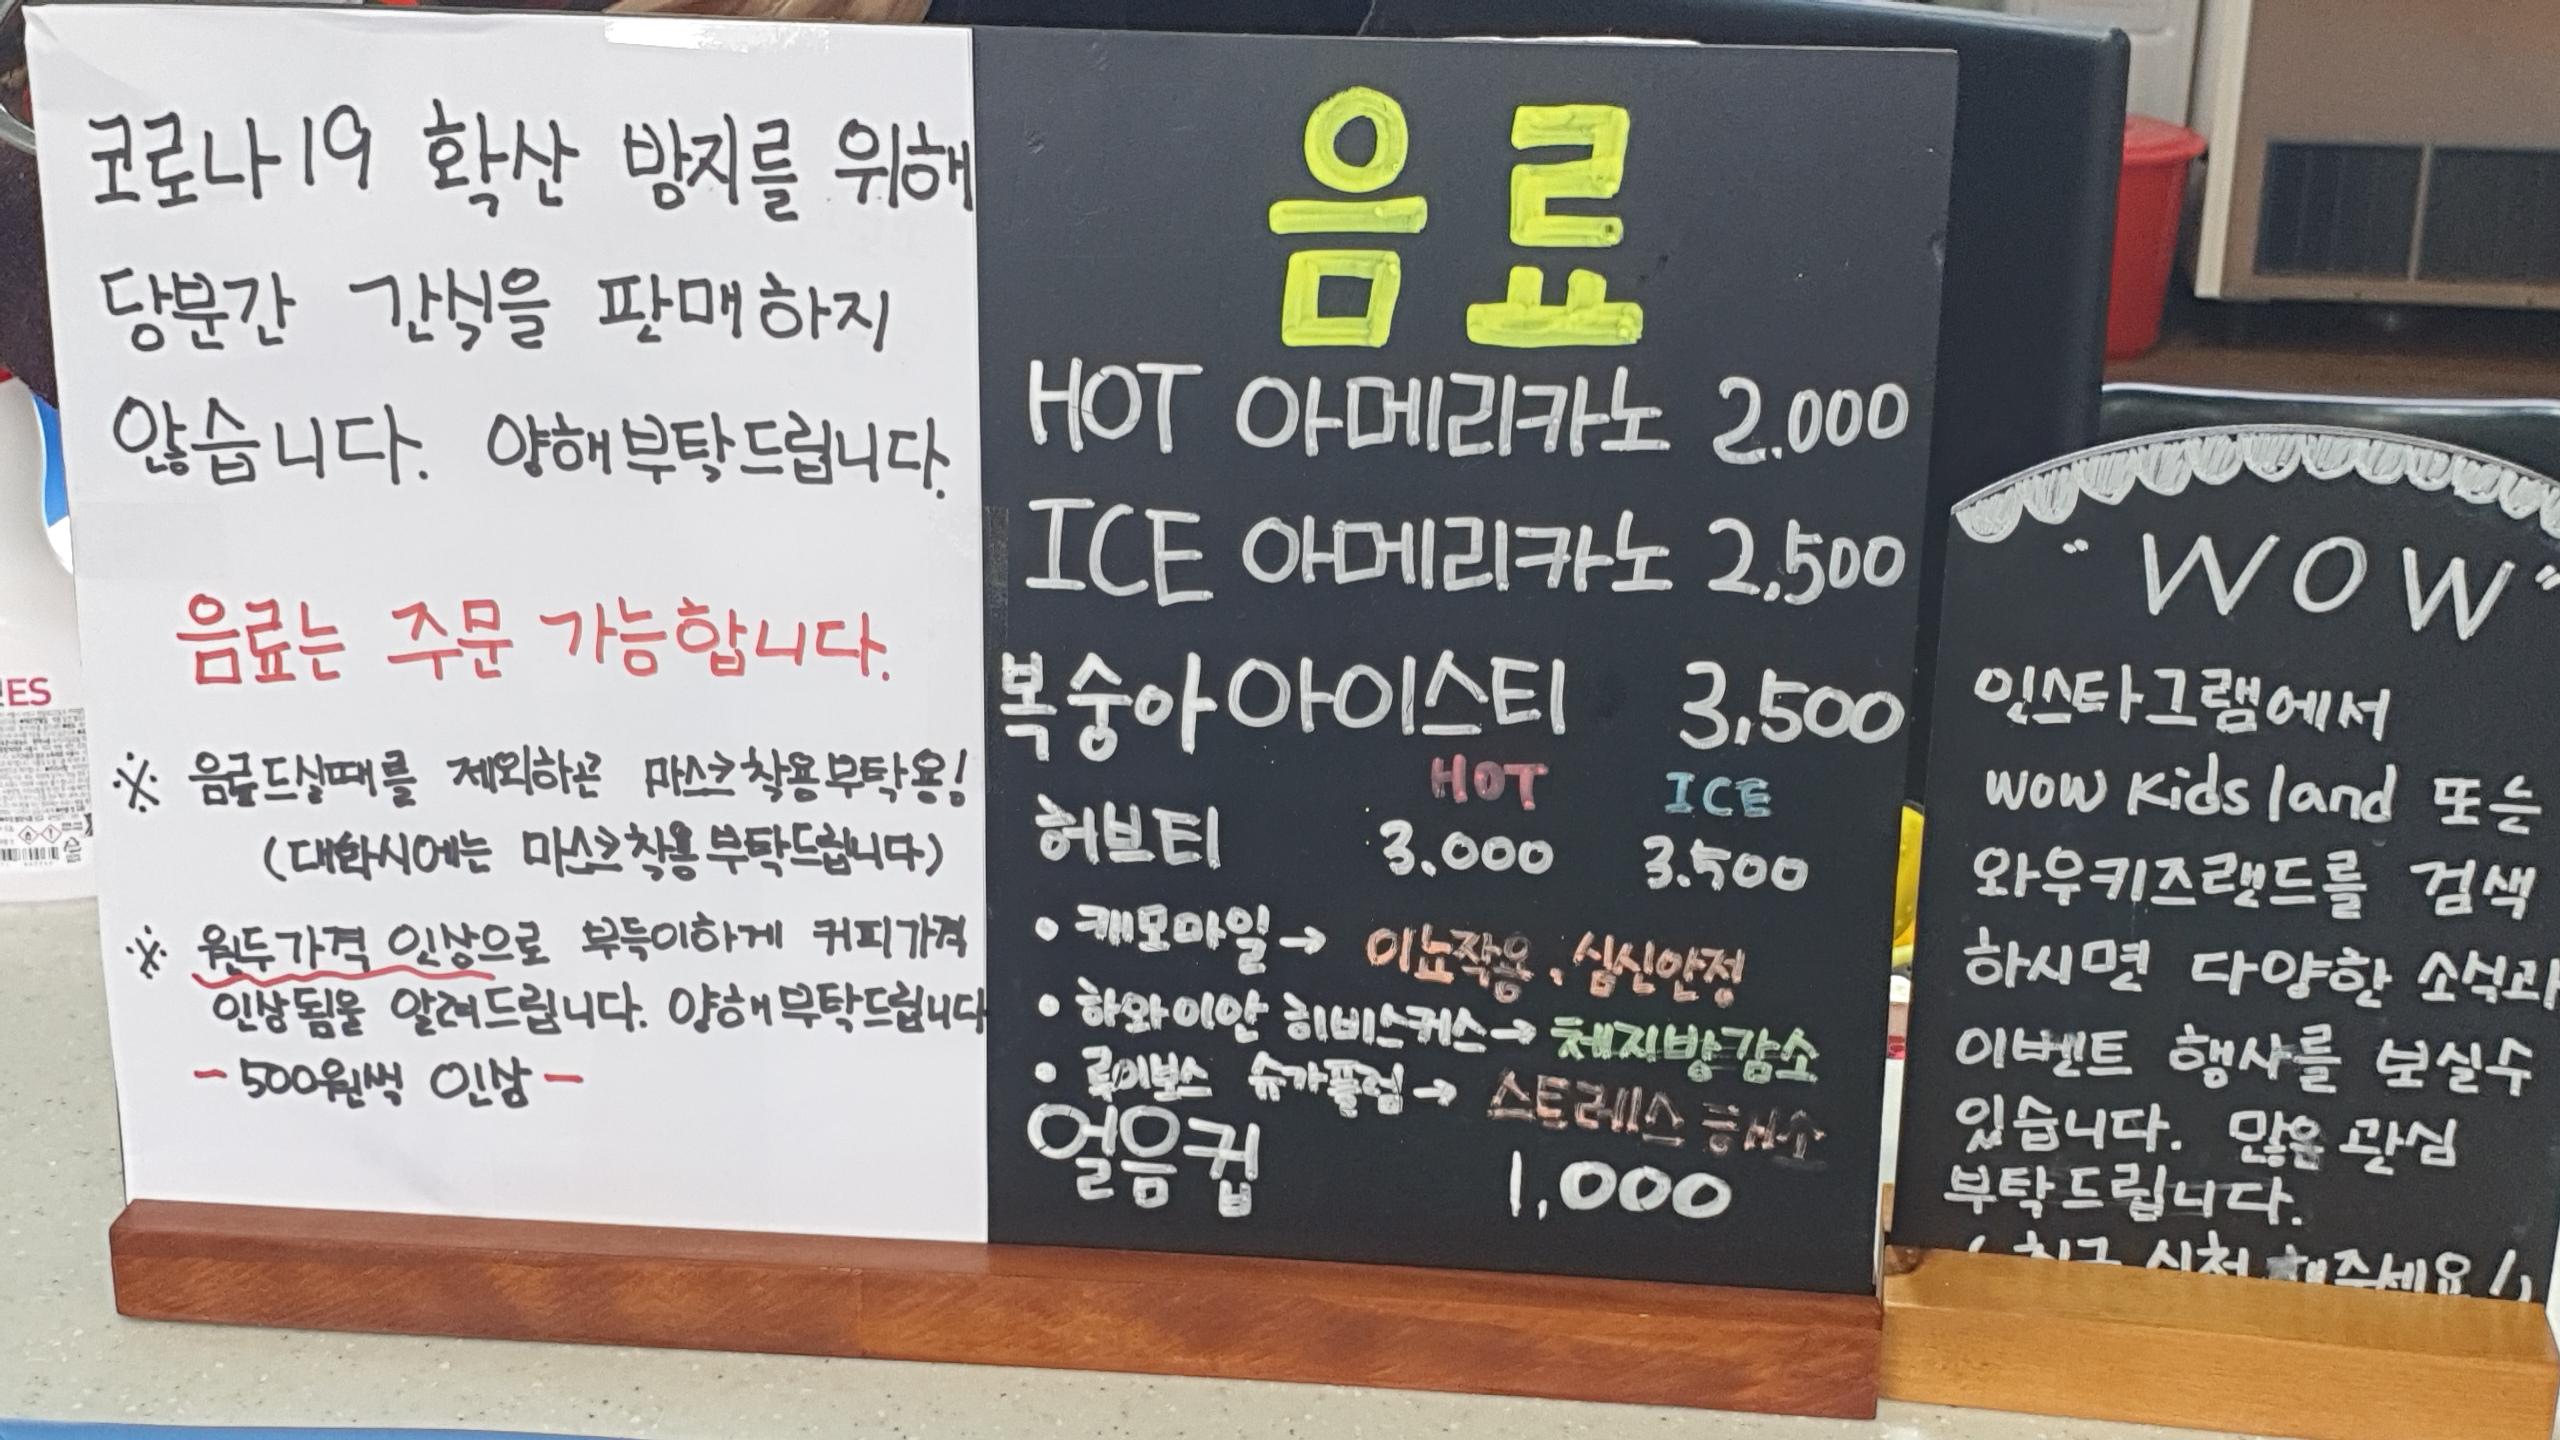 코로나19 확산 방지를 위해
당분간 간식을 판매하지
않습니다. 양해부탁드립니다.
음료는 주문 가능합니다.
※ 음료드실때를 제외하곤 마스크착용부탁용!
(대화시에는 마스크착용부탁드립니다)
※ 원두가격 인상으로 부득이하게 커피가격
인상됨을 알려드립니다. 양해부탁드립니다
- 500원씩 인상 -
음료
HOT 아메리카노 2.000
ICE 아메리카노 2,500
복숭아아이스티 3,500
HOT ICE
허브티 3.000 3.500
• 캐모마일→ 이뇨작용, 심신안정
• 하와이안 히비스커스→ 체지방감소
• 루이보스 슈가플럼→ 스트레스 해소
얼음컵 1,000
"WOW"
인스타그램에서
wow kids land 또는
와우키즈랜드를 검색
하시면 다양한 소식과
이벤트 행사를 보실수
있습니다. 많은 관심
부탁드립니다.
ES